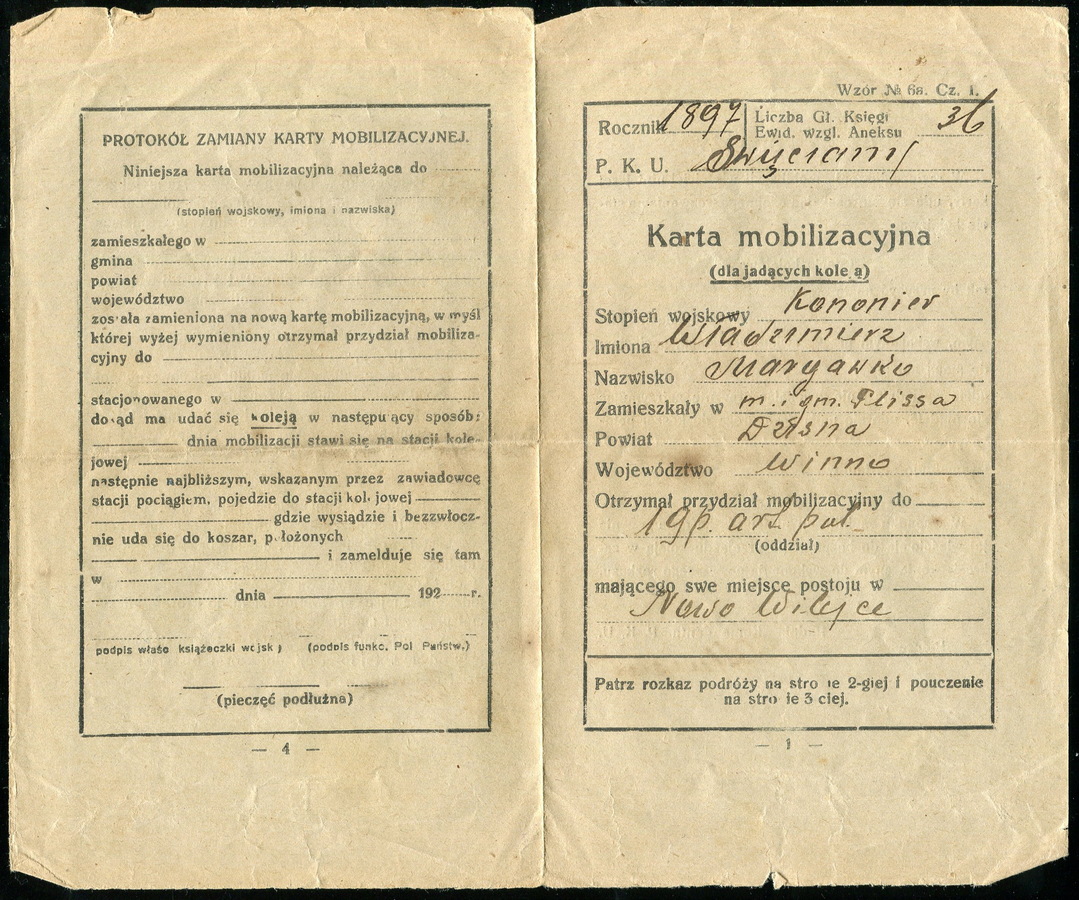 PROTOKÓŁ ZAMIANY KARTY MOBILIZACYJNEJ.
Niniejsza karta mobilizacyjna należąca do
(stopień wojskowy, imiona i nazwiska)
zamieszkałego w
gmina
powiat
województwo
została zamieniona na nową kartę mobilizacyjną, w myśl
której wyżej wymieniony otrzymał przydział mobiliza-
cyjny do
stacjonowanego w
dokąd ma udać się koleją w następujący sposób:
dnia mobilizacji stawi się na stacji kole-
jowej
następnie najbliższym, wskazanym przez zawiadowcę
stacji pociągiem, pojedzie do stacji kolejowej
gdzie wysiądzie i bezzwłocz-
nie uda się do koszar, położonych
i zamelduje się tam
w
dnia 192 r.
podpis właśc książeczki wojsk) (podpis funkc. Pol Państw.)
(pieczęć podłużna)
— 4 —
Wzór № 6a. Cz. I.
Rocznik 1897
Liczba Gł. Księgi
Ewid. wzgl. Aneksu 36
P. K. U. Święciany
Karta mobilizacyjna
(dla jadących koleją)
Stopień wojskowy Kononier
Imiona Władzimierz
Nazwisko Margawko
Zamieszkały w m. i gm. Plissa
Powiat Dzisna
Województwo Winno
Otrzymał przydział mobilizacyjny do
19 p. art. pol.
(oddział)
mającego swe miejsce postoju w
Nowo Wilejce
Patrz rozkaz podróży na stronie 2-giej i pouczenie
na stronie 3 ciej.
— 1 —